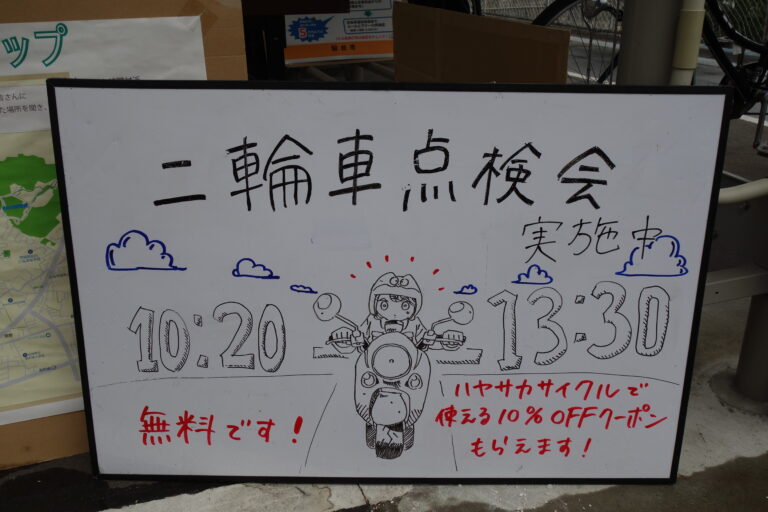 ップ
皆さんに
た場所を聞き、
二輪車点検会
実施中
10:20
13:30
無料です!
ハヤサカサイクルで
使える10%OFFクーポン
もらえます!